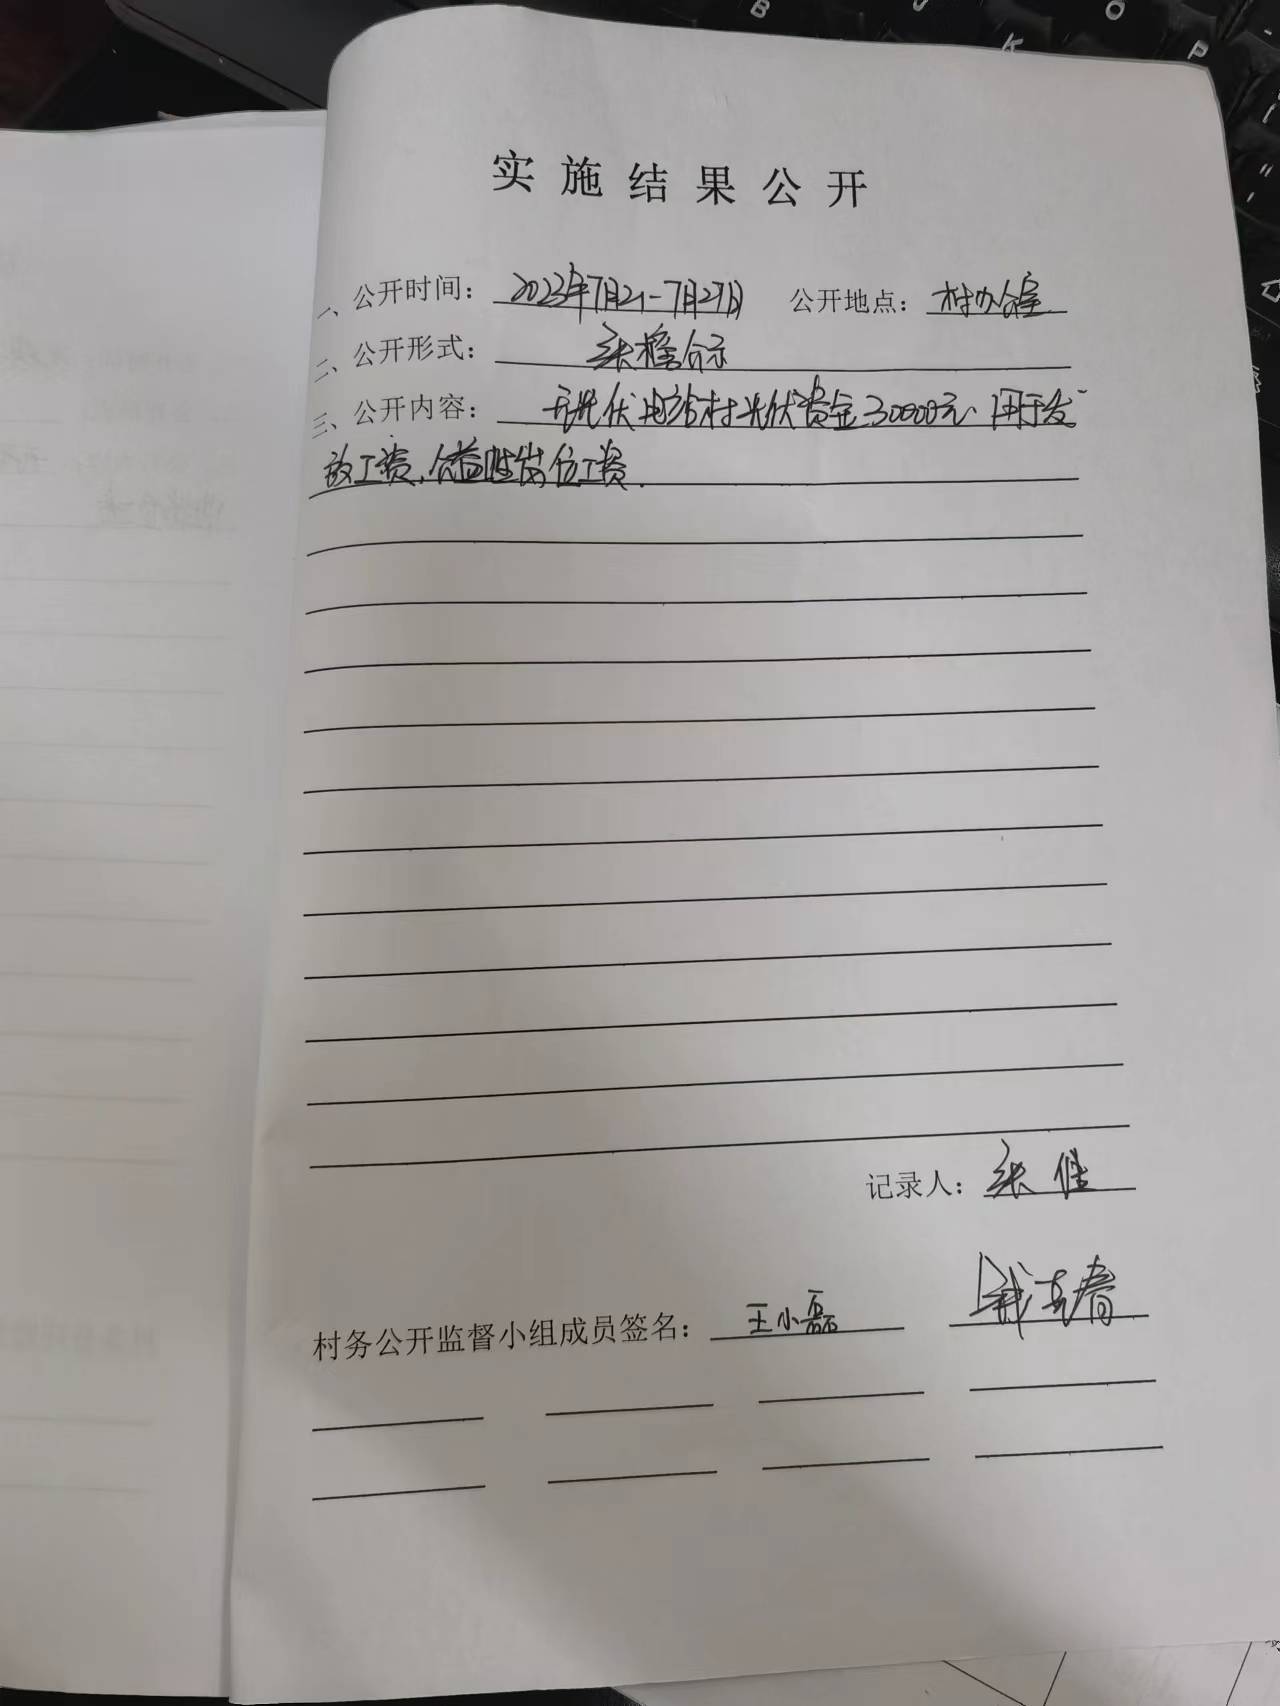 实施结果公开
一、公开时间：2023年7月21-7月27日 公开地点：村办公室
二、公开形式：张榜公示
三、公开内容：光伏电站村光伏资金30000元、用于发
放工资、公益性岗位工资.
记录人：张佳
村务公开监督小组成员签名：王小磊